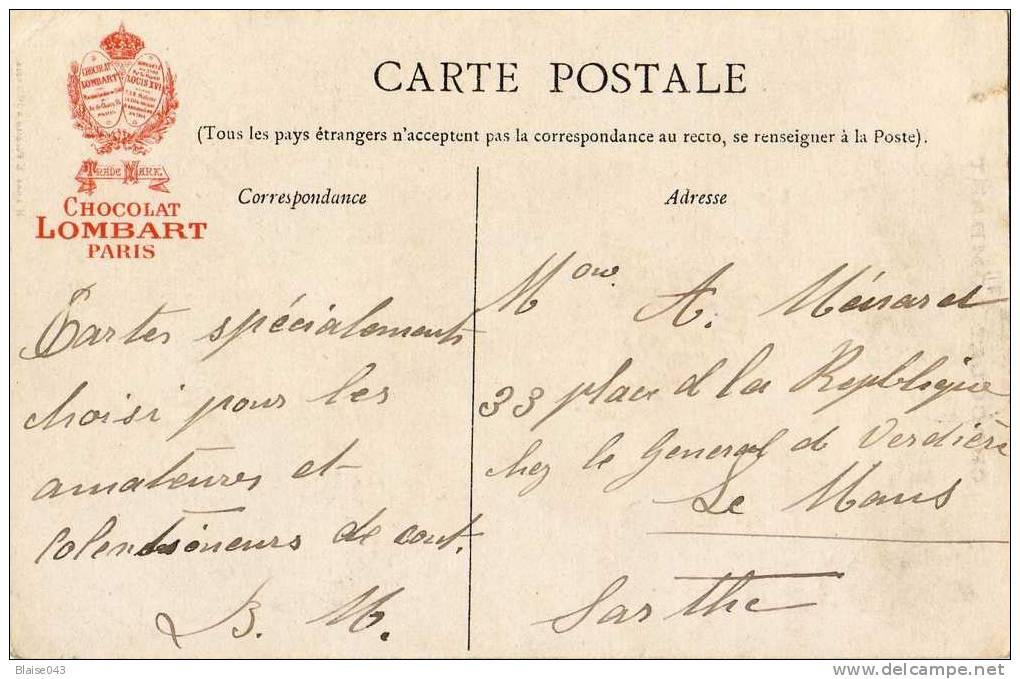 CHOCOLAT
LOMBART
LOUIS XVI
PARIS
TRADE MARK
CHOCOLAT
LOMBART
PARIS
CARTE POSTALE
(Tous les pays étrangers n'acceptent pas la correspondance au recto, se renseigner à la Poste).
Correspondance
Cartes spécialements
choisi pour les
amateures et
de
B. M.
Adresse
A. Ménard
33 place d la Republique
chez le General de Verdière
Le Mans
Sarthe
Blaise043
www.delcampe.net